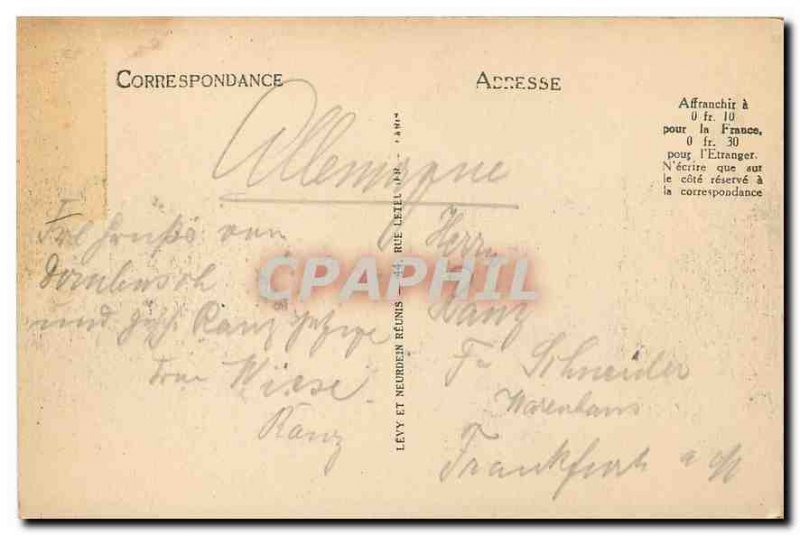 CORRESPONDANCE
ADRESSE
Affranchir à
0 fr. 10
pour la France,
0 fr. 30
pour l'Etranger.
N'écrire que sur
le côté réservé à
la correspondance
Allemagne
von
und Ranz
Frau Wiese.
Ranz
LÉVY ET NEURDEIN RÉUNIS — 44, RUE LETELLIER — PARIS
Herrn
Ranz
Fr Schneider
Warenhaus
Frankfurt a/M
CPAPHIL